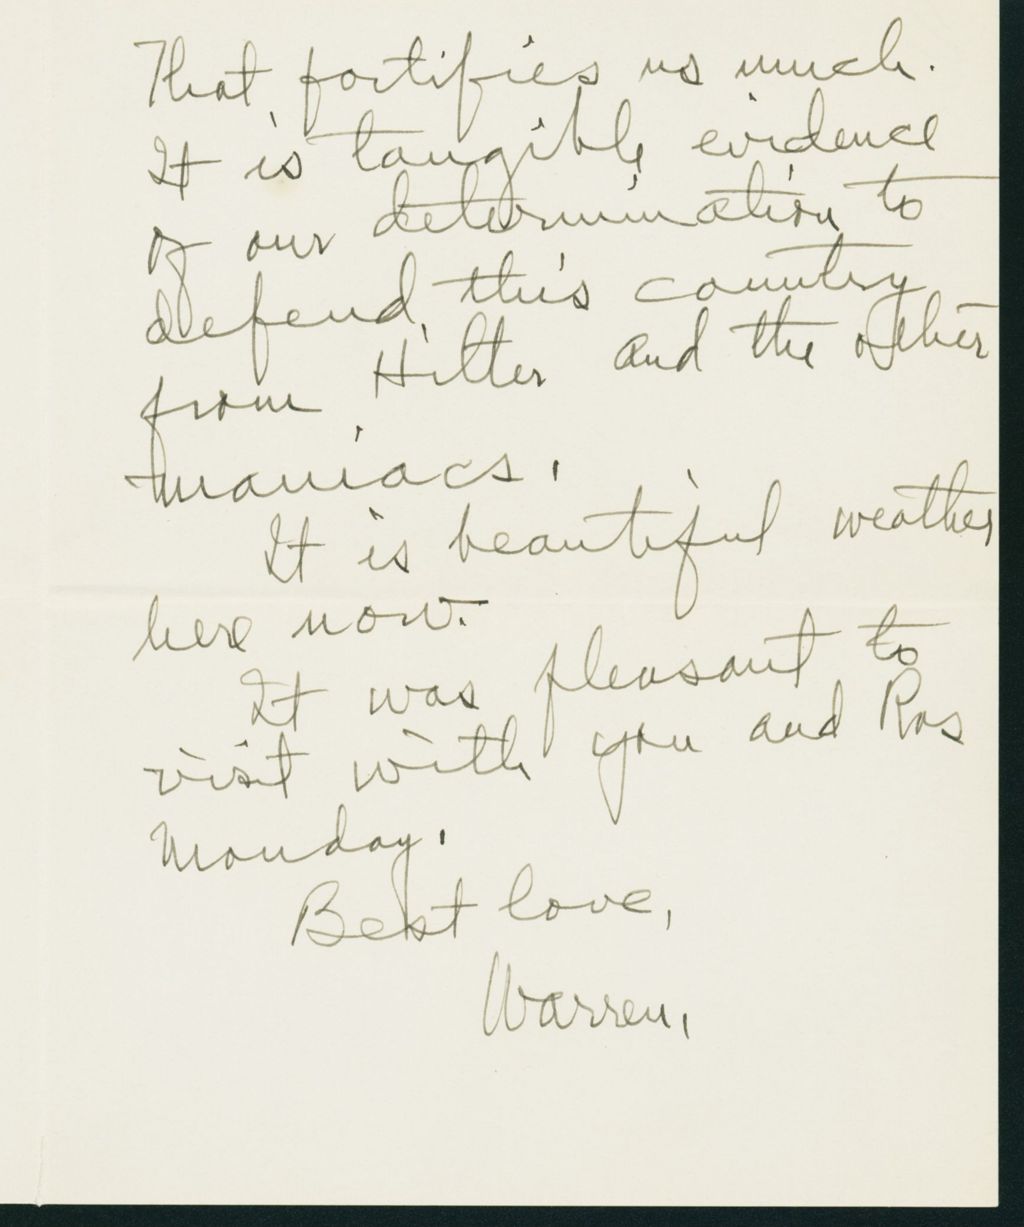 That fortifies us much.
It is tangible evidence
of our determination to
defend this country
from Hitler and the other
maniacs.
It is beautiful weather
here now.
It was pleasant to
visit with you and Ros
Monday.
Best love,
Warren.